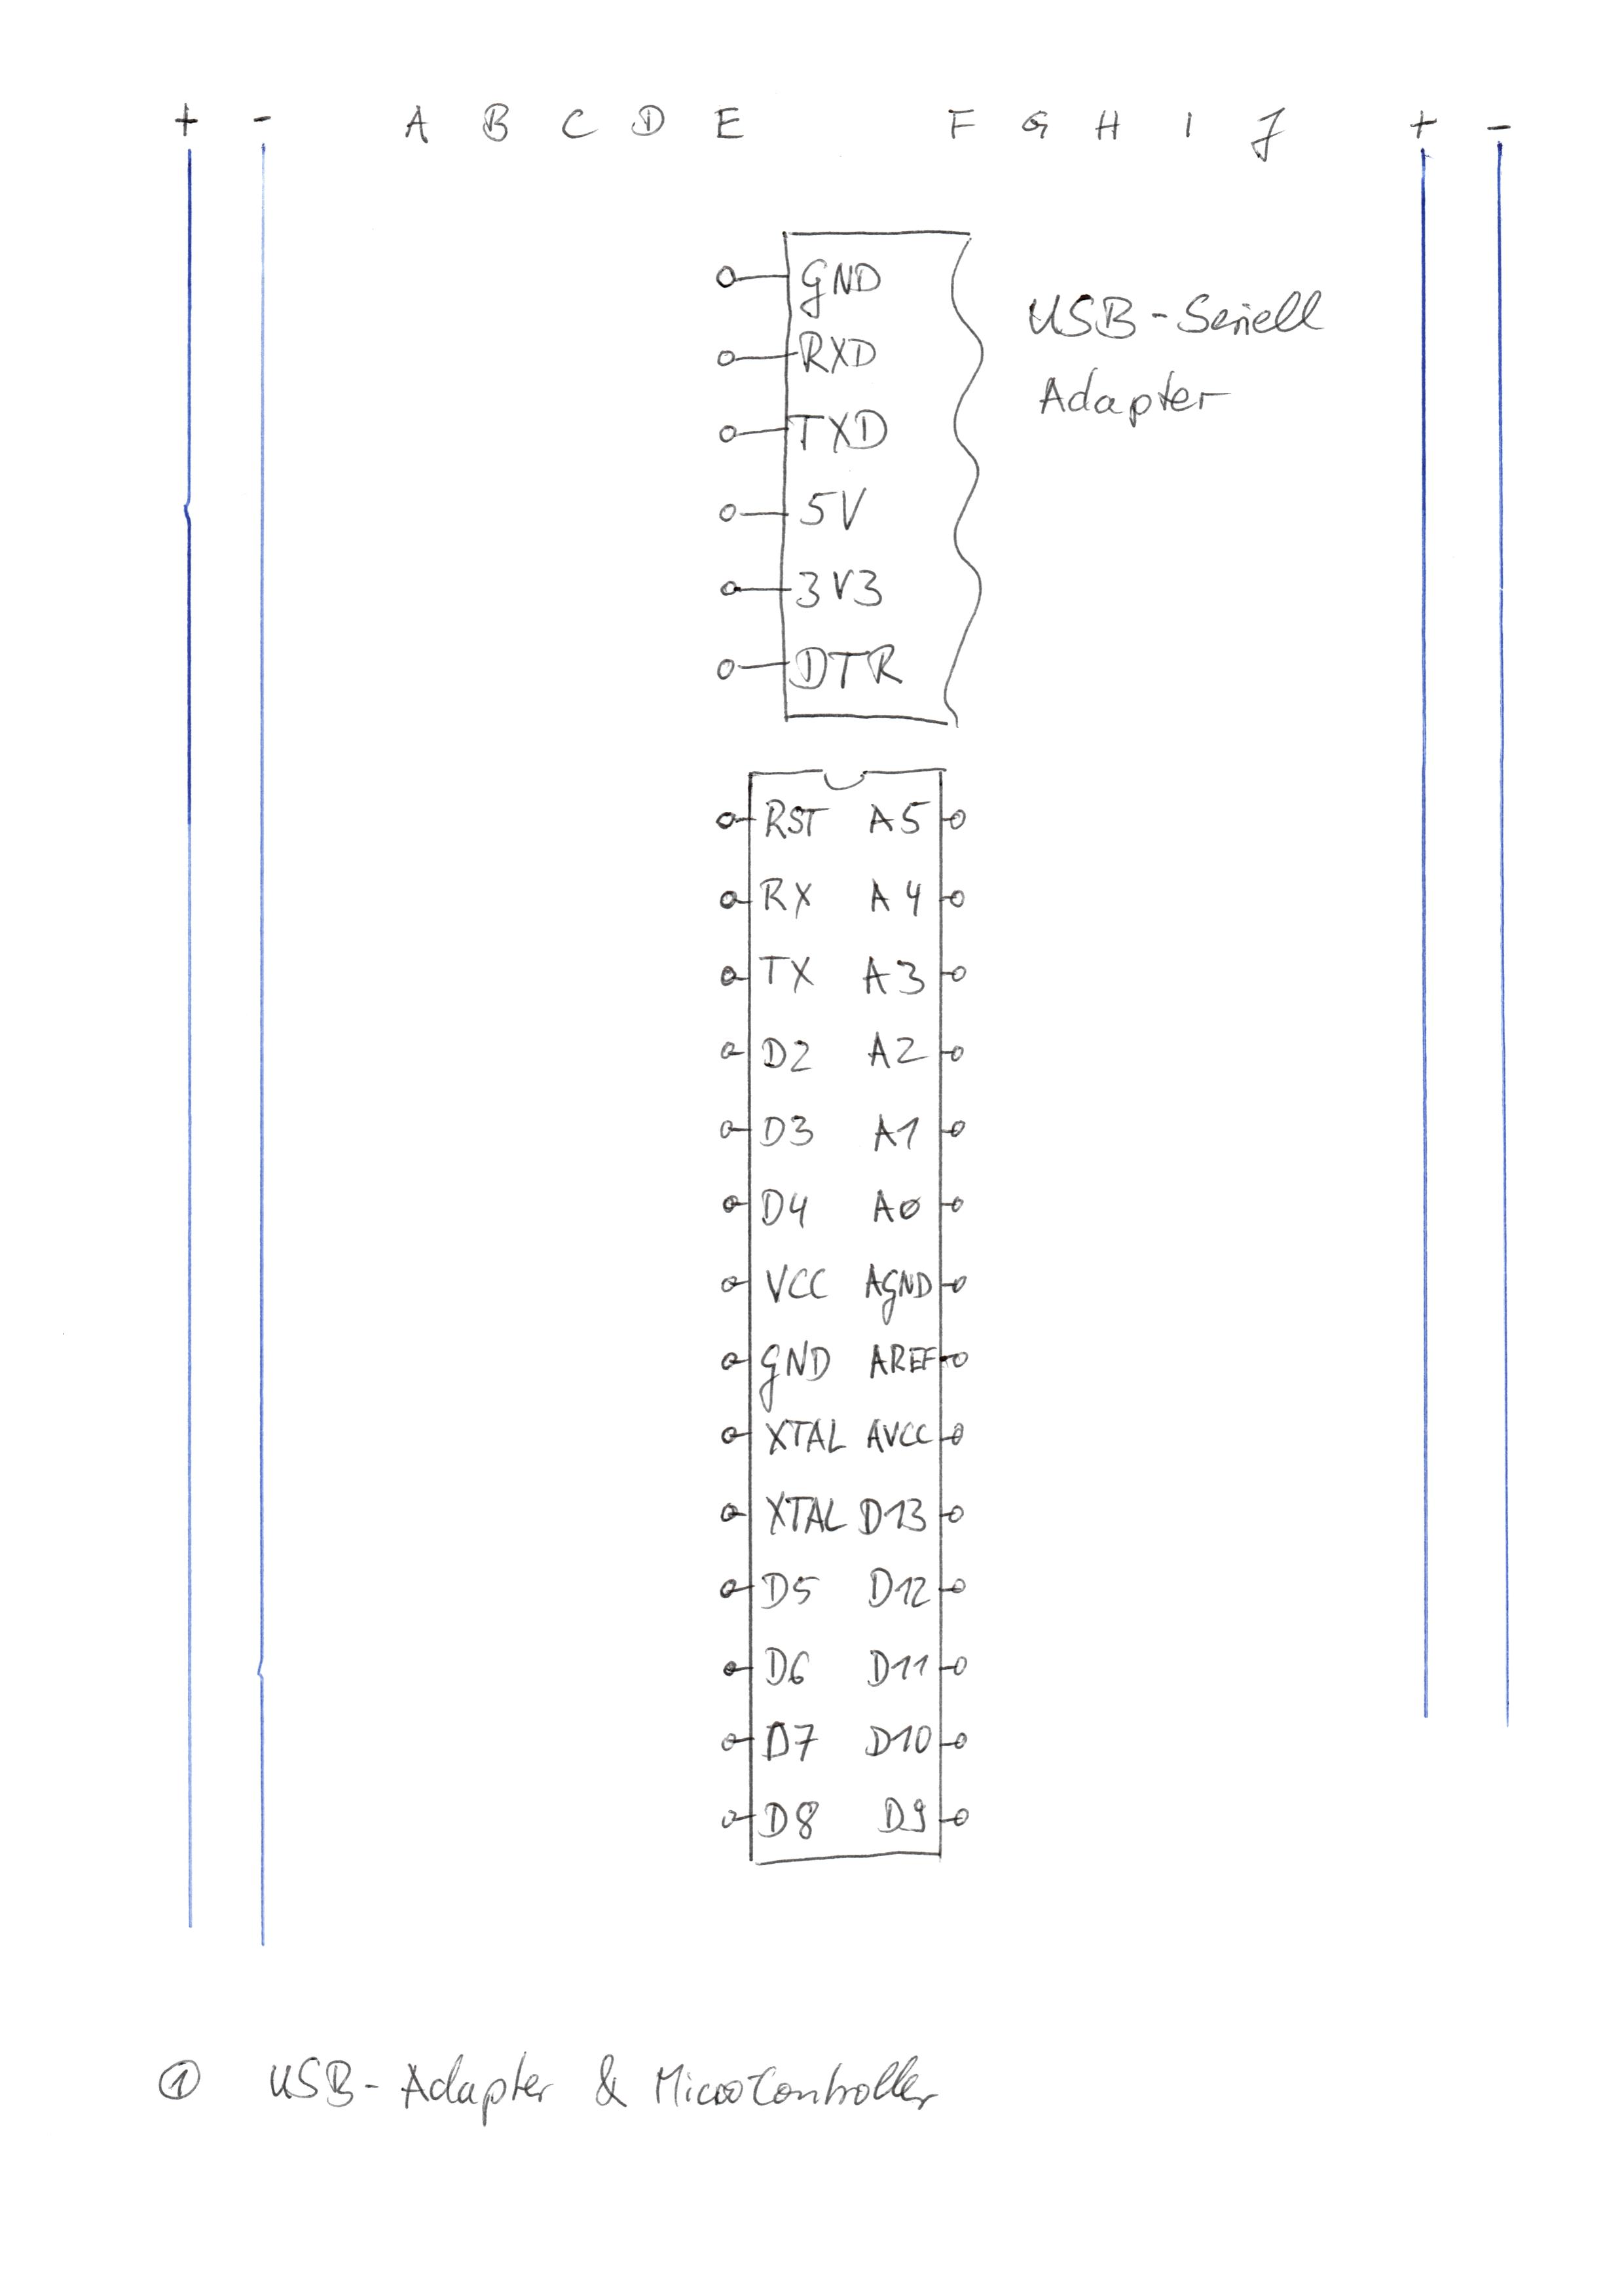 + - A B C D E F G H I J + -
GND
RXD
TXD
5V
3V3
DTR
USB-Seriell
Adapter
RST A5
RX A4
TX A3
D2 A2
D3 A1
D4 A0
VCC AGND
GND AREF
XTAL AVCC
XTAL D13
D5 D12
D6 D11
D7 D10
D8 D9
① USB-Adapter & Microcontroller